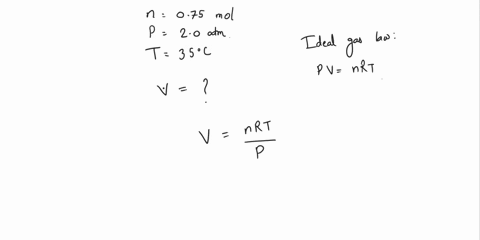 n = 0.75 mol
P = 2.0 atm
T = 35°C
V = ?
Ideal gas law:
PV = nRT
V = nRT/P